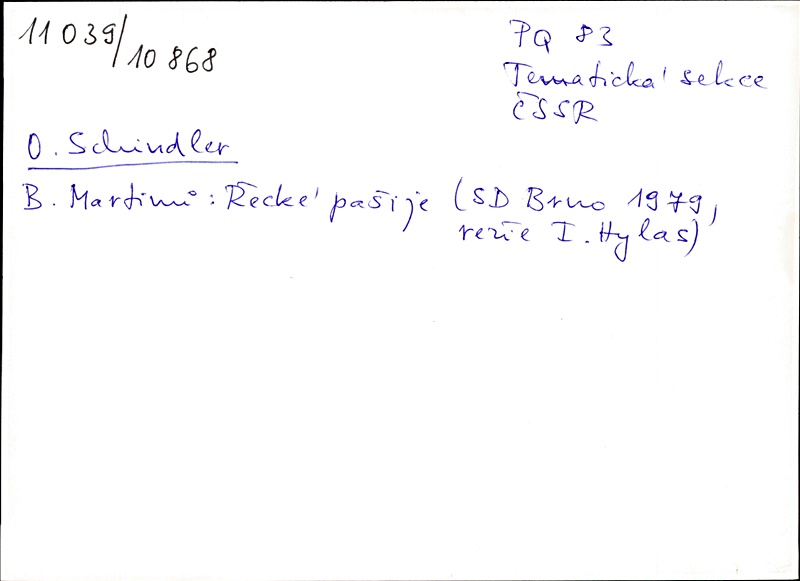 11 039/10 868
PQ 83
Tematická sekce
ČSSR
O. Schindler
B. Martinů: Řecké pašije (SD Brno 1979,
režie I. Hylas)